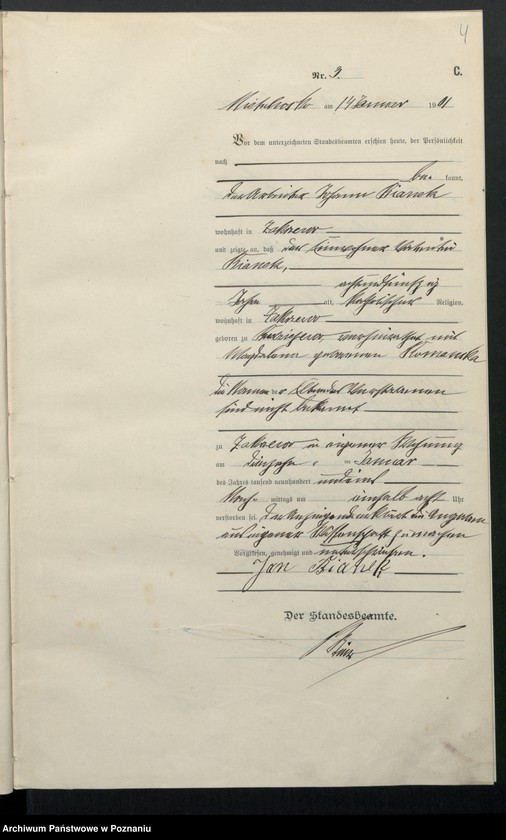 4
Nr. 3. C.
am 14 Januar 1901
Vor dem unterzeichneten Standesbeamten erschien heute, der Persönlichkeit
nach
be= kannt,
der Arbeiter Johann Bianek
wohnhaft in Zakrewo
und zeigte an, daß der Einwohner Valentin
Bianek,
achtundfünfzig
Jahre alt, katholischer Religion,
wohnhaft in Zakrewo
geboren zu verheirathet mit
Magdalena geborenen
die Namen der Eltern des Verstorbenen
sind nicht bekannt
zu Zakrewo in eigener Wohnung
am ten Januar
des Jahres tausend neunhundert und eins
Nach= mittags um einhalb acht Uhr
verstorben sei. Der Anzeigende erklärt die Angaben
aus eigener Wissenschaft zu machen
Vorgelesen, genehmigt und unterschrieben.
Jan Bianek
Der Standesbeamte.
Archiwum Państwowe w Poznaniu